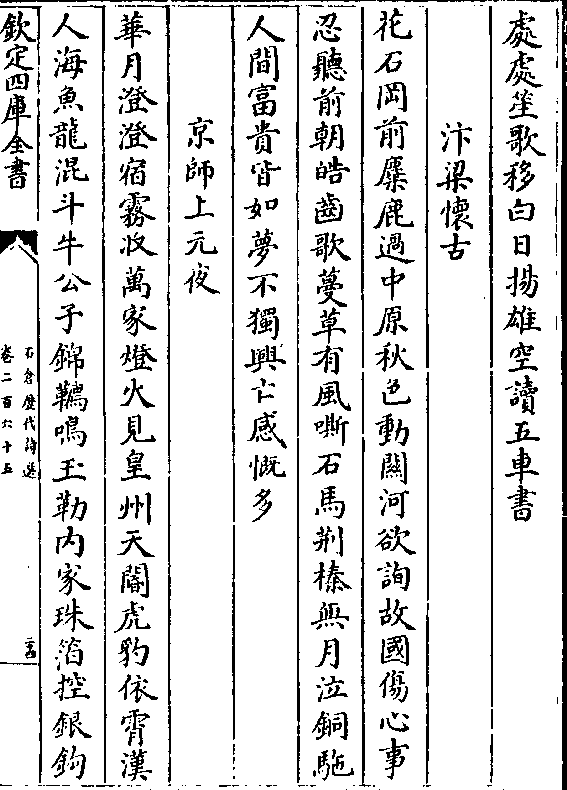 處處笙歌移白日揚雄空讀五車書
汴梁懷古
花石岡前麋鹿過中原秋色動關河欲詢故國傷心事
忍聽前朝皓齒歌蔓草有風嘶石馬荆榛無月泣銅駞
人間富貴皆如夢不獨興亡感慨多
京師上元夜
華月澄澄宿霧收萬家燈火見皇州天閽虎豹依霄漢
人海魚龍混斗牛公子錦韉鳴玉勒内家珠箔控銀鈎
欽定四庫全書
石倉歷代詩選
卷二百六十五